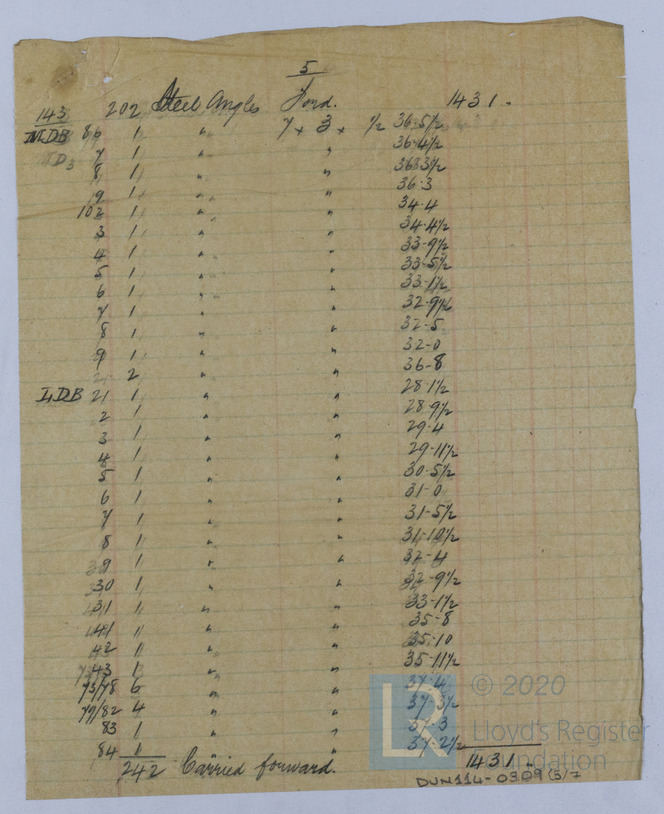 5
143 202 Steel Angles Ford. 1431.
86 1 " 7 x 3 x 1/2 36-5 1/2
7 1 " " 36-4 1/2
8 1 " " 36-3 1/2
9 1 " " 36-3
102 1 " " 34-4
3 1 " " 34-4 1/2
4 1 " " 33-9 1/2
5 1 " " 33-5 1/2
6 1 " " 33-1 1/2
7 1 " " 32-9 1/2
8 1 " " 32-5
9 1 " " 32-0
2 " " 36-8
LDB 21 1 " " 28-1 1/2
2 1 " " 28-9 1/2
3 1 " " 29-4
4 1 " " 29-11 1/2
5 1 " " 30-5 1/2
6 1 " " 31-0
7 1 " " 31-5 1/2
8 1 " " 31-10 1/2
9 1 " " 32-4
30 1 " " 32-9 1/2
31 1 " " 33-1 1/2
41 1 " " 35-8
42 1 " " 35-10
43 1 " " 35-11 1/2
73/78 6 " " 37-4
79/82 4 " " 37-3 1/2
83 1 " " 37-3
84 " " 37-2 1/2
242 Carried forward. 1431.
DUN114-0309(5)/7
© 2020
Lloyd's Register
Foundation
LR